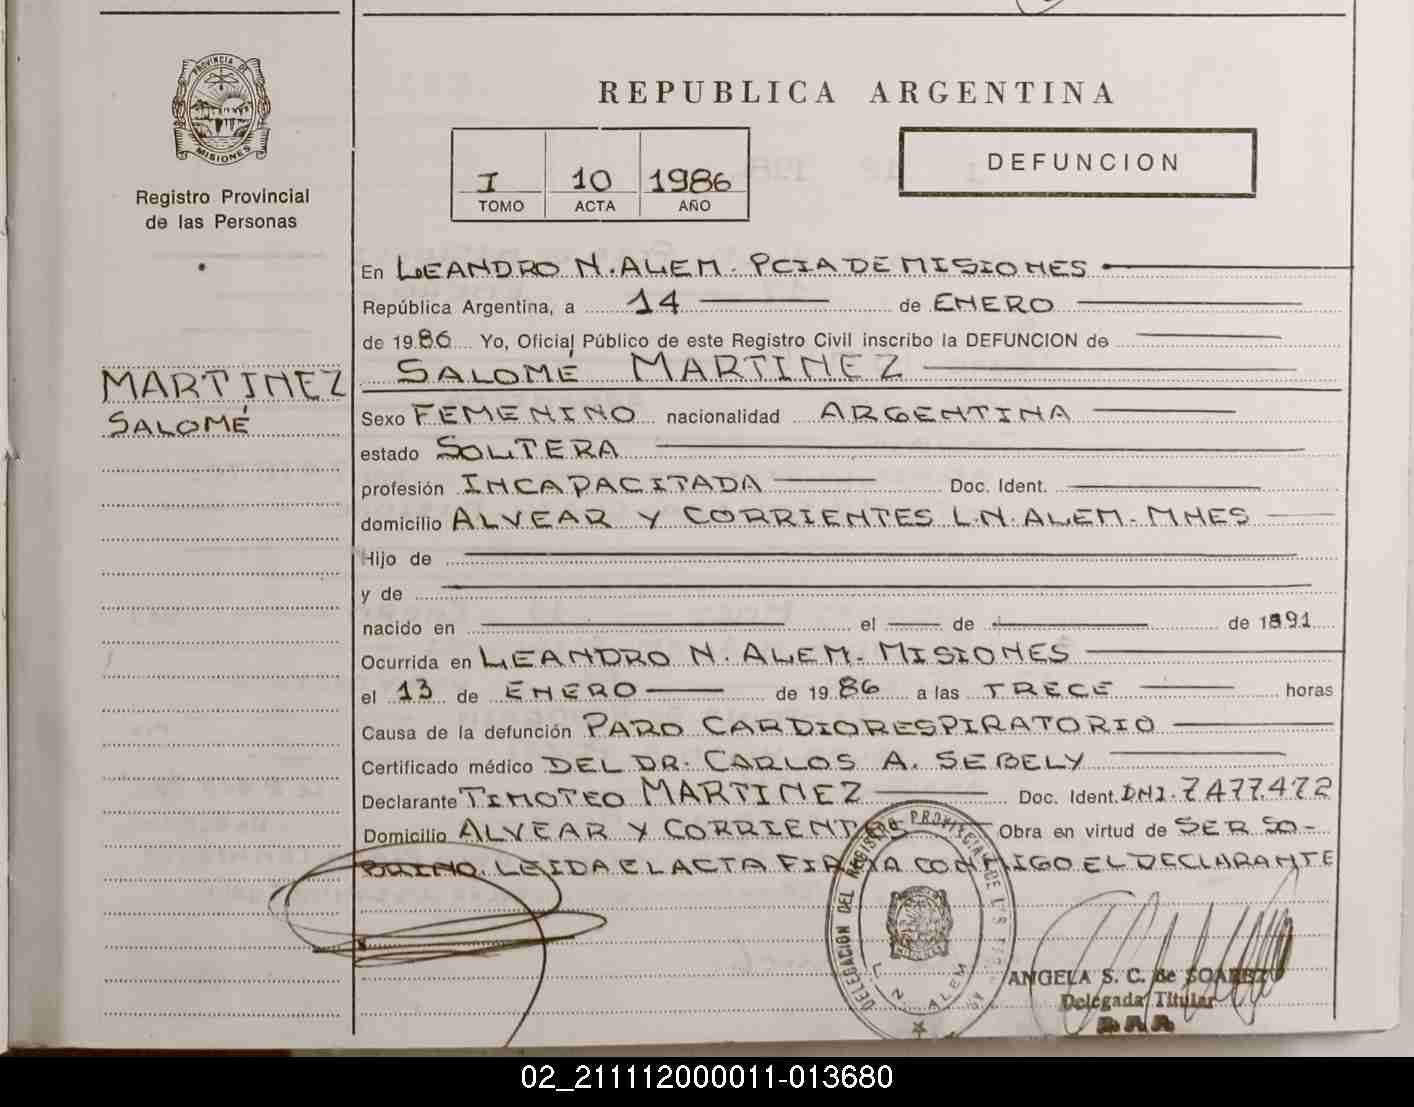 PROVINCIA DE
MISIONES
Registro Provincial
de las Personas
MARTINEZ
SALOMÉ
REPUBLICA ARGENTINA
I 10 1986
TOMO ACTA AÑO
DEFUNCION
En LEANDRO N. ALEM. PCIA DE MISIONES
República Argentina, a 14 de ENERO
de 1986 Yo, Oficial Público de este Registro Civil inscribo la DEFUNCION de
SALOMÉ MARTINEZ
Sexo FEMENINO nacionalidad ARGENTINA
estado SOLTERA
profesión INCAPACITADA Doc. Ident.
domicilio ALVEAR Y CORRIENTES L.N. ALEM. MNES
Hijo de
y de
nacido en el de de 1891
Ocurrida en LEANDRO N. ALEM. MISIONES
el 13 de ENERO de 1986 a las TRECE horas
Causa de la defunción PARO CARDIORESPIRATORIO
Certificado médico DEL DR. CARLOS A. SEBELY
Declarante TIMOTEO MARTINEZ Doc. Ident. DNI. 7.477.472
Domicilio ALVEAR Y CORRIENTES Obra en virtud de SER SO-
BRINO. LEIDA EL ACTA FIRMA CONMIGO EL DECLARANTE
DELEGACION DEL REGISTRO PROVINCIAL DE LAS
L. N. ALEM
ANGELA S. C. de SOAREZ
Delegada Titular
02_211112000011-013680